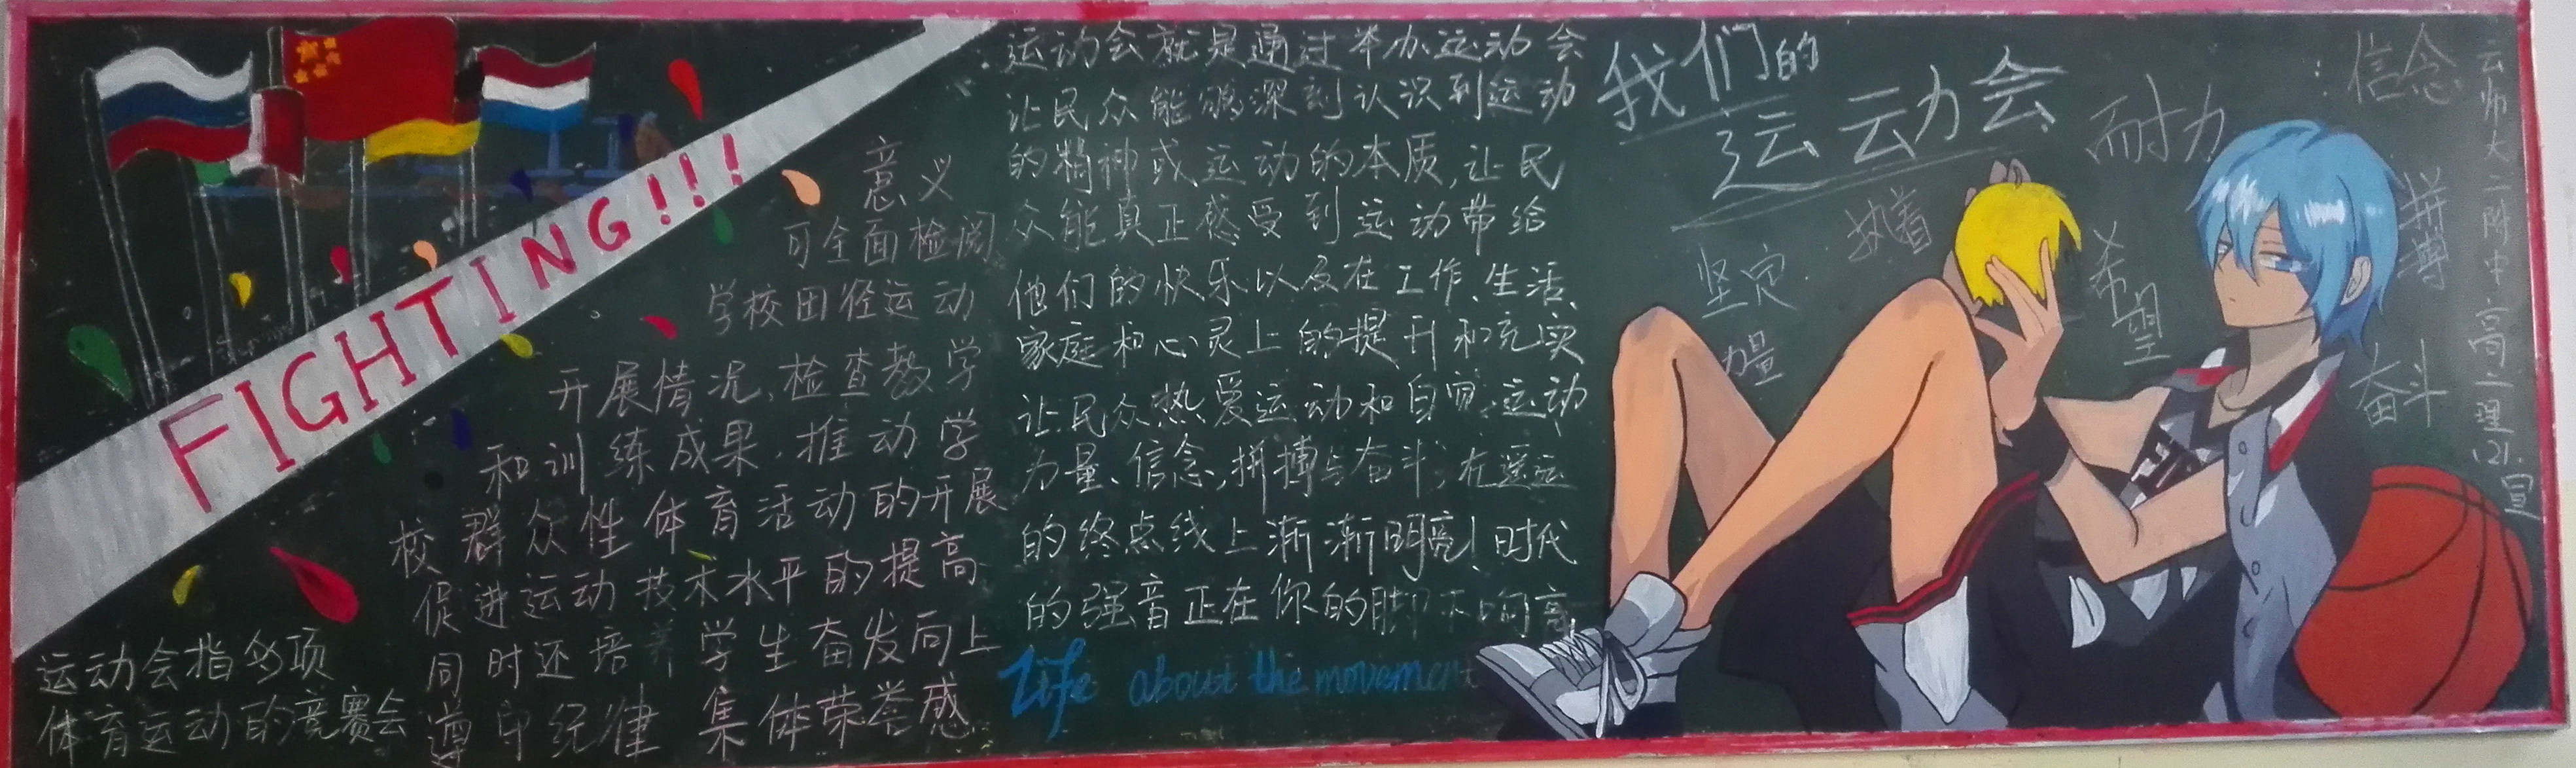 FIGHTING!!!
运动会指多项
体育运动的竞赛会
意义
可全面检阅
学校田径运动
开展情况,检查教学
和训练成果,推动学
校群众性体育活动的开展
促进运动技术水平的提高
同时还培养学生奋发向上
遵守纪律 集体荣誉感
运动会就是通过举办运动会
让民众能够深刻认识到运动
的精神或运动的本质,让民
众能真正感受到运动带给
他们的快乐以及在工作、生活、
家庭和心灵上的提升和充实
让民众热爱运动和自
运动
力量、信念,拼搏与奋斗,在
的终点线上渐渐明亮!时代
的强音正在你的脚下响亮
Life about the movement
我们的
运动会
坚定
力量
执着
耐力
希望
信念
拼搏
奋斗
云师大二附中高二理(2).宣